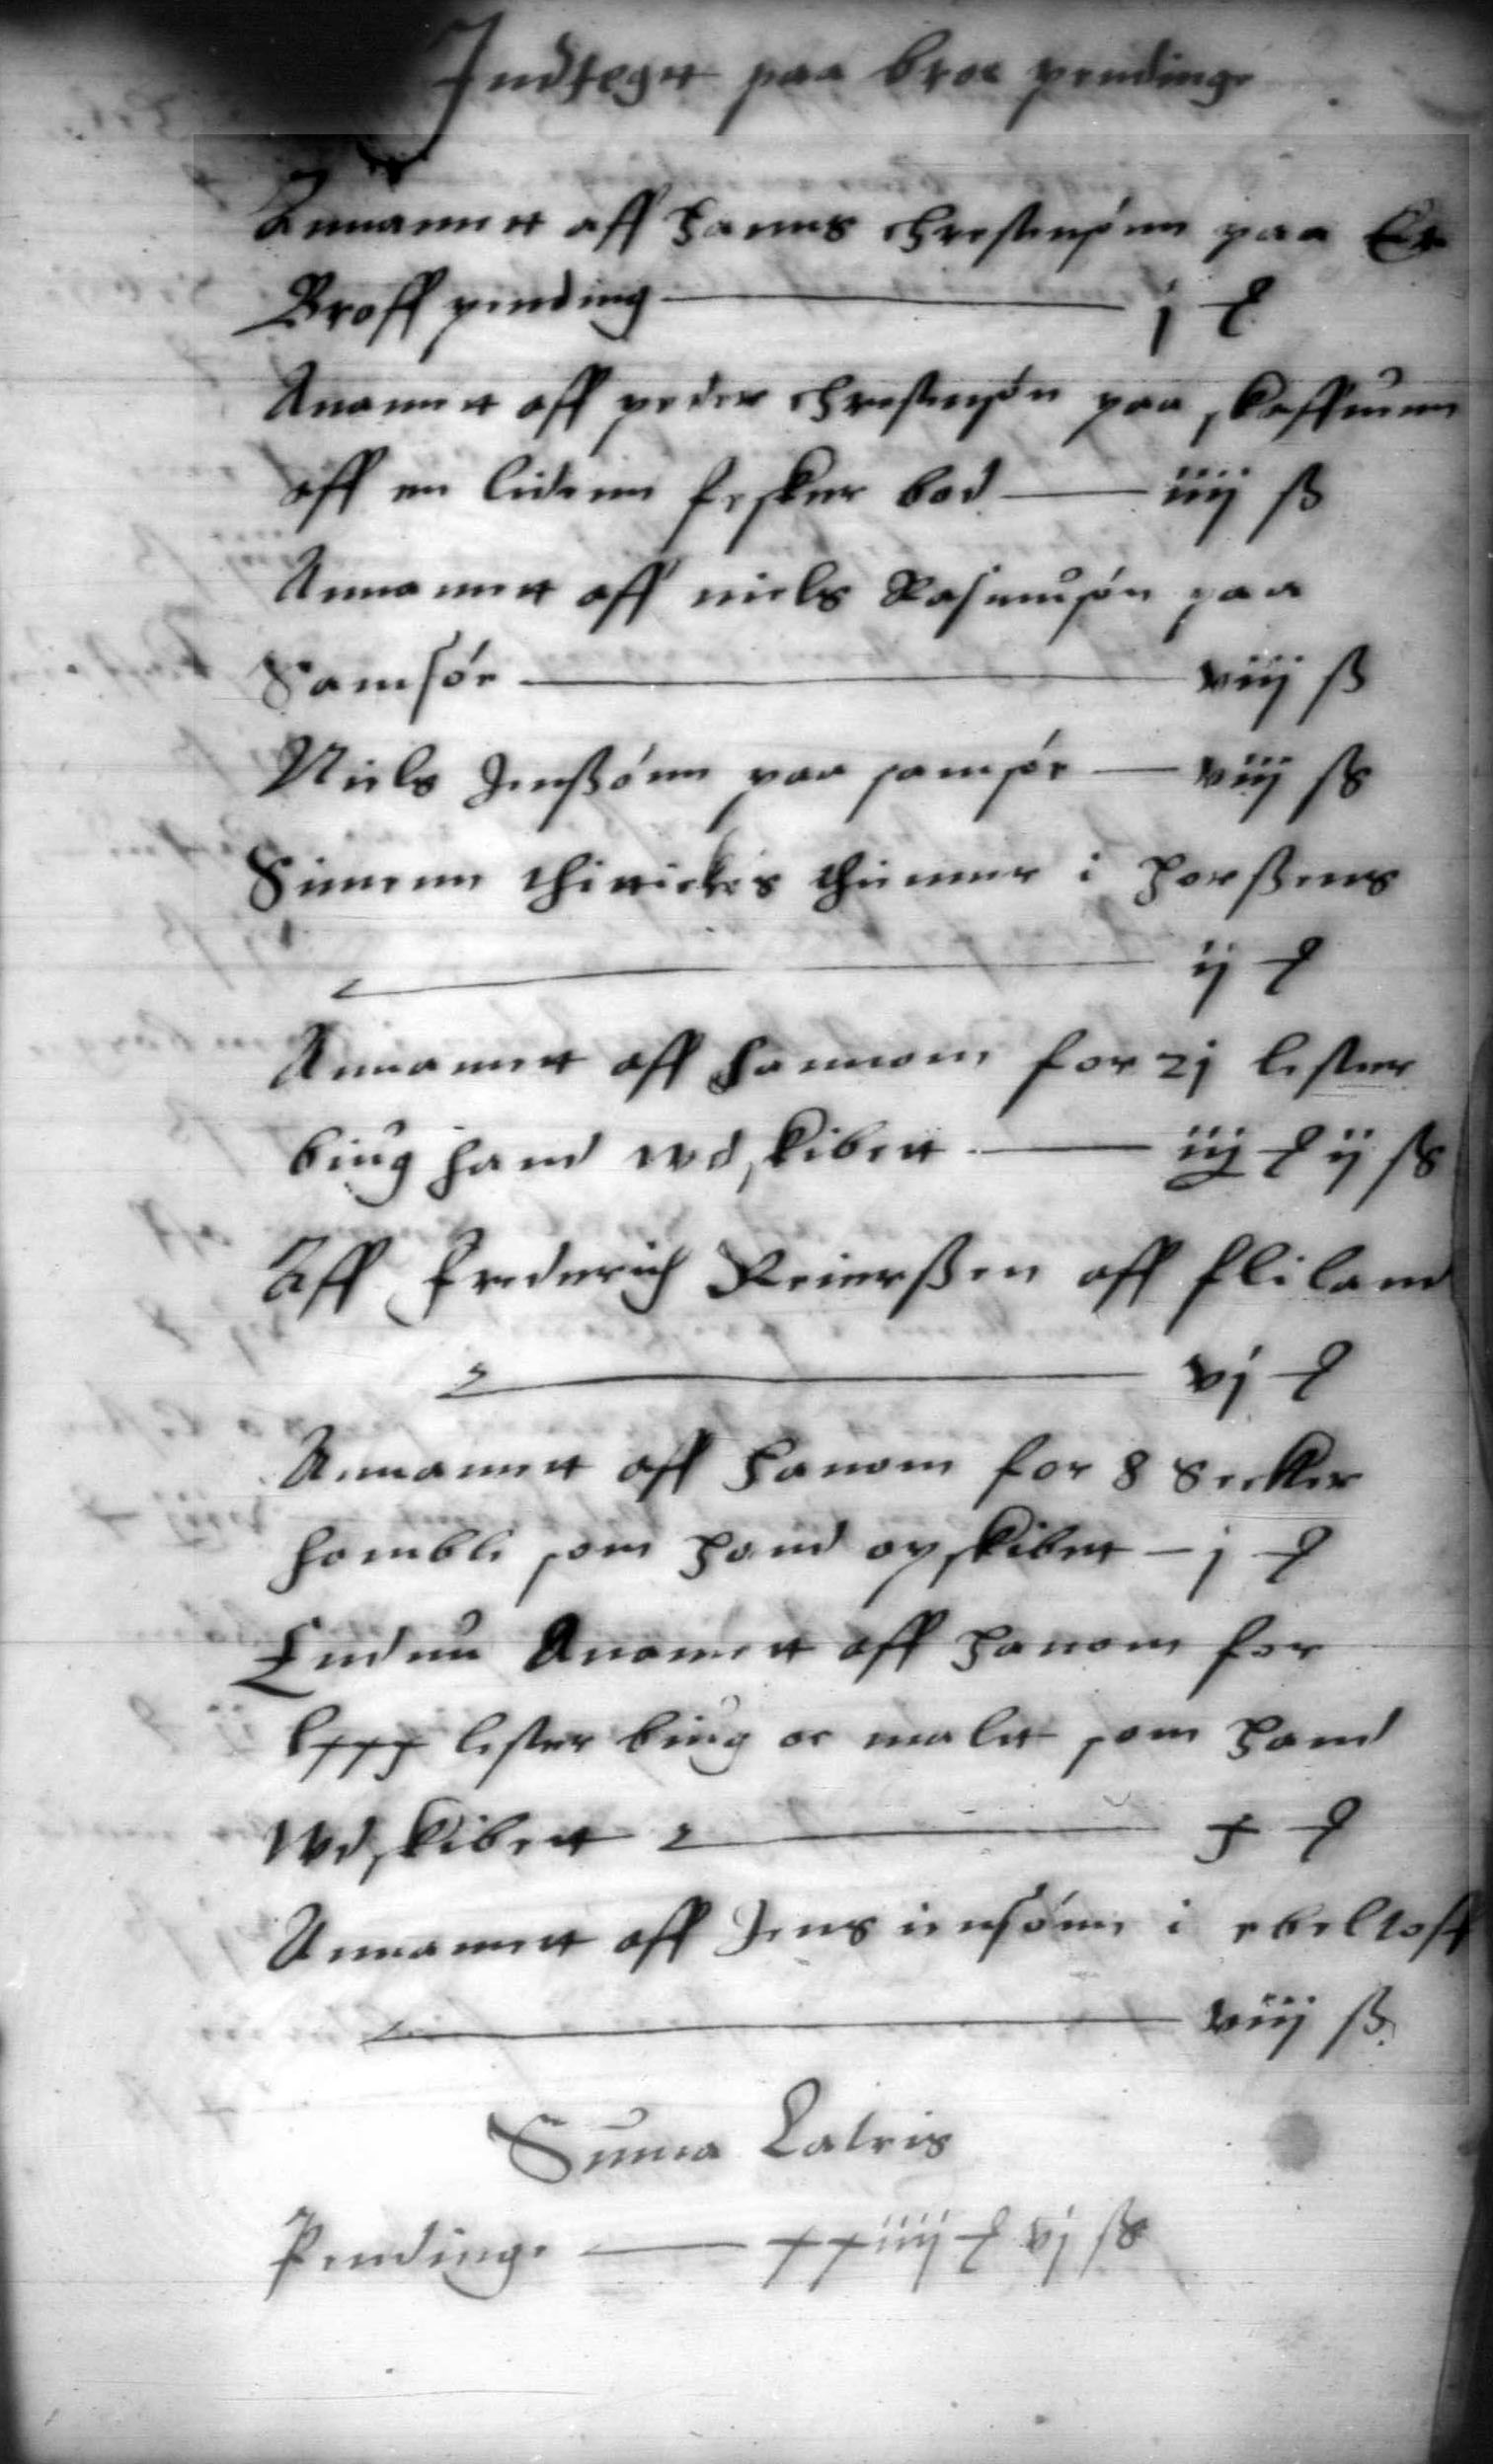 Indtegtt paa broe pendinge
Annammett aff Hanns chrestensønn paa Er
Broff pending — j ₰
Anammett aff peder chrestensøn paa skaffuunn
aff en lidenn fesker bod — iiij ß
Annammett aff niels Rasmusøn paa
Samsøe — viij ß
Niels Jenssønn paa samsøe — viij ß
Simenn i Horssens
— ij ₰
Annammett aff hannom for 2j lester
biug hand wdskibett — iij ₰ ij ß
Aff Frederich Reierssen aff fliland
— vj ₰
Annammett aff Hanom for 8 Secker
hombli som Hand opskibett — j ₰
Endnu Anammett aff Hanom for
lxxx lester biug oc maltt som Hand
Wdskibett — x ₰
Annammett aff Jens iensønn i ebeltoff
— viij ß
Suma Latris
Pendinge — xxiiij ₰ vj ß